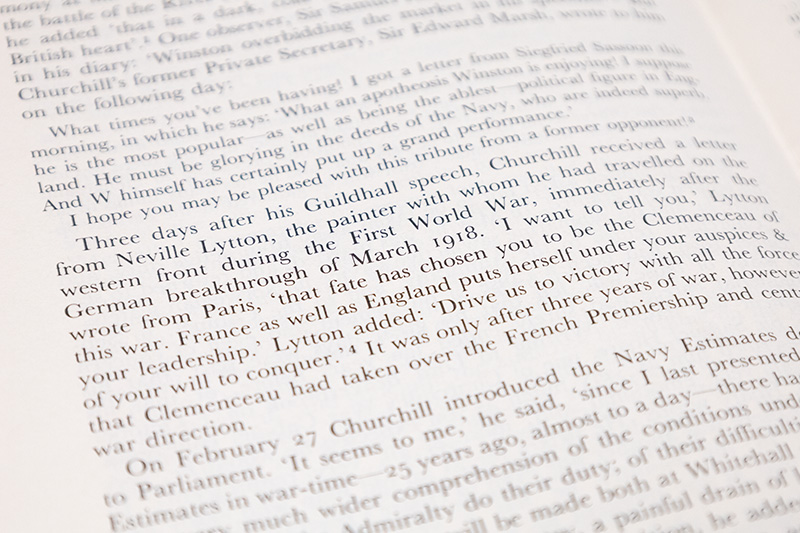 the battle of the
he added 'that in a dark, cold
British heart'.² One observer, Sir
in his diary: 'Winston overbidding the market in his
Churchill's former Private Secretary, Sir Edward Marsh, wrote to him
on the following day:
What times you've been having! I got a letter from Siegfried Sassoon this
morning, in which he says: 'What an apotheosis Winston is enjoying! I suppose
he is the most popular—as well as being the ablest—political figure in Eng-
land. He must be glorying in the deeds of the Navy, who are indeed superb.
And W himself has certainly put up a grand performance.'
I hope you may be pleased with this tribute from a former opponent!³
Three days after his Guildhall speech, Churchill received a letter
from Neville Lytton, the painter with whom he had travelled on the
western front during the First World War, immediately after the
German breakthrough of March 1918. 'I want to tell you,' Lytton
wrote from Paris, 'that fate has chosen you to be the Clemenceau of
this war. France as well as England puts herself under your auspices &
your leadership.' Lytton added: 'Drive us to victory with all the force
of your will to conquer.'⁴ It was only after three years of war, however
that Clemenceau had taken over the French Premiership and cent
war direction.
On February 27 Churchill introduced the Navy Estimates
to Parliament. 'It seems to me,' he said, 'since I last presented
Estimates in war-time—25 years ago, almost to a day—there ha
much wider comprehension of the conditions und
Admiralty do their duty; of their difficulti
will be made both at Whitehall
a painful drain of
he adde